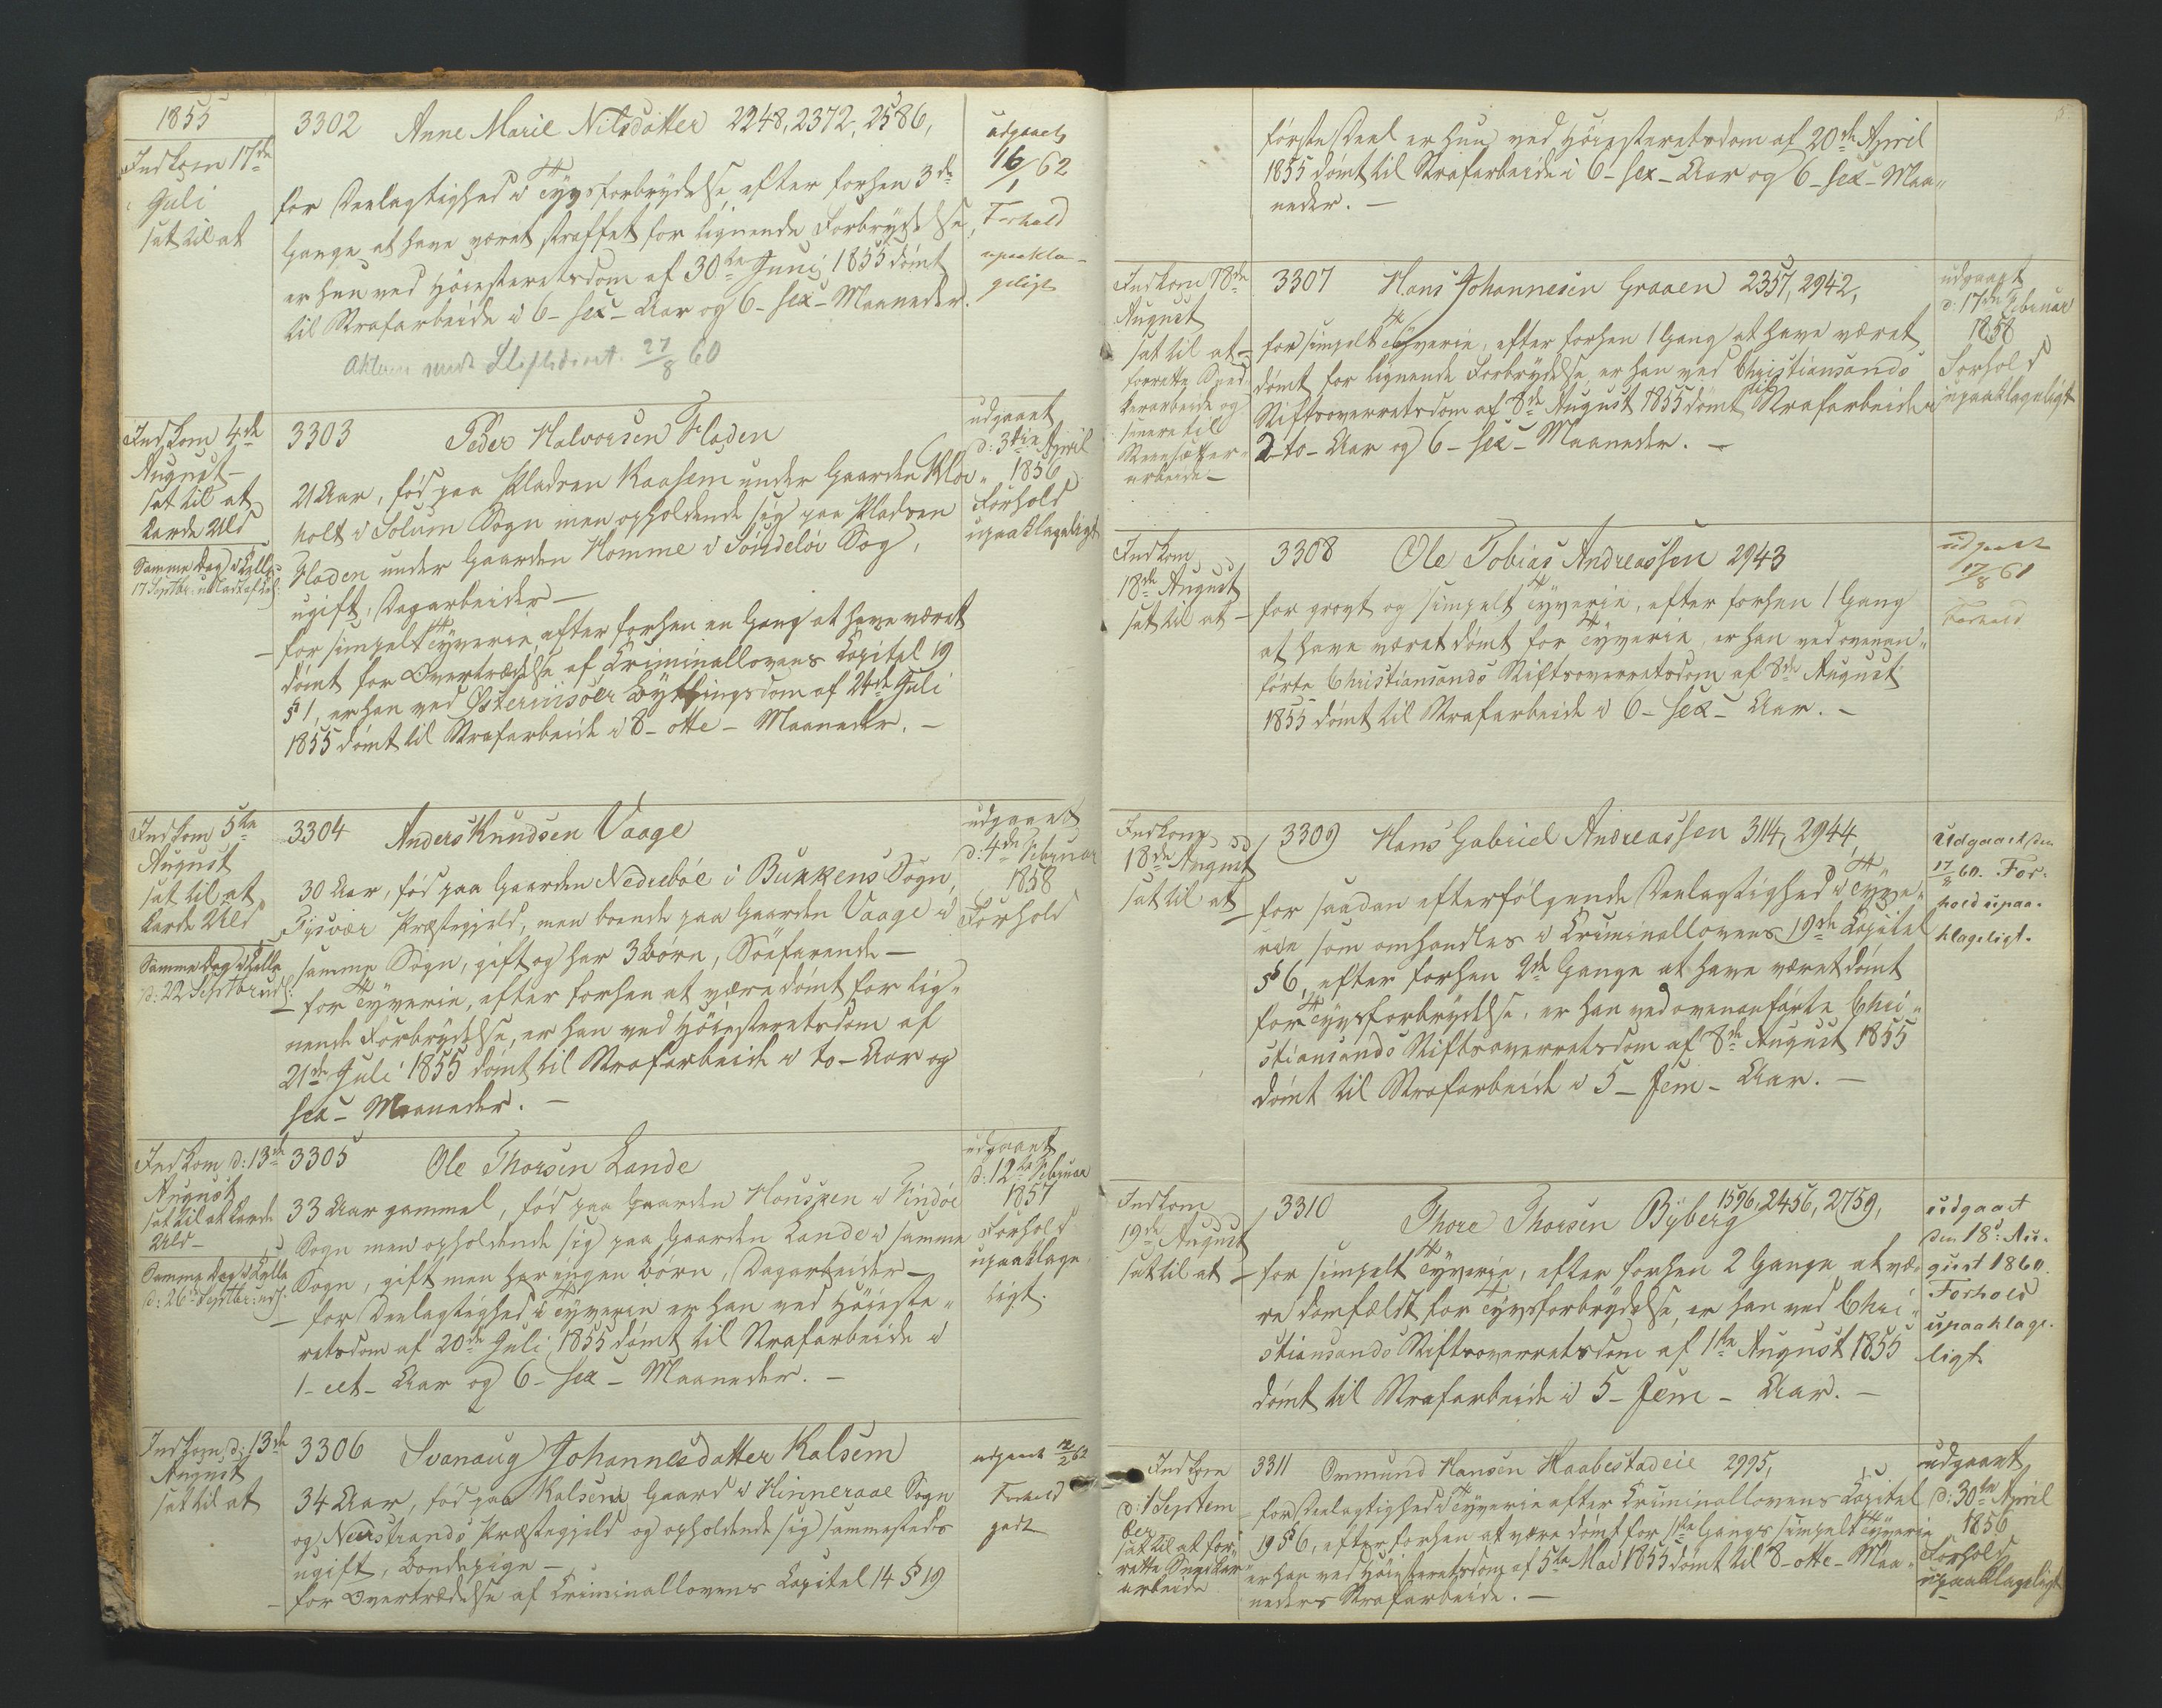 1855
Indkom 17de
Juli
sat til at
3302 Anne Marie Nilsdatter 2248, 2372, 2586,
for Deelagtighed i Tyvsforbrydelse, efter forhen 3de
Gange at have været straffet for lignende Forbrydelse,
er hun ved Høiesteretsdom af 30te Juni 1855 dømt
til Strafarbeide i 6 - sex - Aar og 6 - sex - Maaneder.
27/8 60
udgaaet
16/1 62
Forhold
upaakla-
geligt
Indkom 4de
August
sat til at
karde Uld
Samme Dag i Celle
17 Septbr:
3303 Peder Halvorsen Fladen
21 Aar, fød paa Pladsen Kaasem under Gaarden Klov-
holt i Solum Sogn men opholdende sig paa Pladsen
Fladen under Gaarden Homme i Søndeløv Sogn,
ugift, Dagarbeider -
for simpelt Tyverie, efter forhen en Gang at have været
dømt for Overtrædelse af Criminallovens Capitel 19
§ 1, er han ved Østerriisøer Bythingsdom af 24de Juli
1855 dømt til Strafarbeide i 8 - otte - Maaneder. -
udgaaet
d: 3die April
1856
Forhold
upaaklageligt
Indkom 5te
August
sat til at
karde Uld
Samme Dag i Celle
d: 22 Septbr: uds:
3304 Anders Knudsen Vaage
30 Aar, fød paa Gaarden Nedrebøe i Bukkens Sogn,
Tysvær Præstegjeld, men boende paa Gaarden Vaage i
samme Sogn, gift og har 3 Børn, Søefarende -
for Tyverie, efter forhen at være dømt for lig-
nende Forbrydelse, er han ved Høiesteretsdom af
21de Juli 1855 dømt til Strafarbeide i to - Aar og
sex - Maaneder. -
udgaaet
d: 4de Februar
1858
Forhold
Indkom d: 13de
August
sat til at karde
Uld -
Samme Dag i Celle
d: 26de Septbr: uds:
3305 Ole Thorsen Lande
33 Aar gammel, fød paa Gaarden Houspen i Findøe
Sogn men opholdende sig paa Gaarden Lande i samme
Sogn, gift men har ingen Børn, Dagarbeider -
for Deelagtighed i Tyverie er han ved Høieste-
retsdom af 20de Juli 1855 dømt til Strafarbeide i
1 - eet - Aar og 6 - sex - Maaneder. -
udgaaet
d: 12te Februar
1857
Forhold
upaaklage
ligt.
Indkom d: 13de
August
sat til at
3306 Svanaug Johannesdatter Kalsem
34 Aar, fød paa Kalsem Gaard i Hinneraae Sogn
og Nærstrands Præstegjeld og opholdende sig sammesteds
ugift, Bondepige -
for Overtrædelse af Criminallovens Capitel 14 § 19
udgaaet 12/2 62
Forhold
godt
første Deel er hun ved Høiesteretsdom af 20de April
1855 dømt til Strafarbeide i 6 - sex - Aar og 6 - sex - Maa-
neder. -
Indkom 18de
August
sat til at
forrette Sned-
kerarbeide og
senere til
arbeide -
3307 Hans Johannesen Graaen 2357, 2942,
for simpelt Tyverie, efter forhen 1 Gang at have været
dømt for lignende Forbrydelse, er han ved Christiansands
Stiftsoverretsdom af 8de August 1855 dømt til Strafarbeide i
2 - to - Aar og 6 - sex - Maaneder. -
udgaaet
d: 17de Februar
1858
Forhold
upaaklageligt
Indkom
18de August
sat til at
3308 Ole Tobias Andreassen 2943
for grovt og simpelt Tyverie, efter forhen 1 Gang
at have været dømt for Tyverie, er han ved ovenan-
førte Christiansands Stiftsoverretsdom af 8de August
1855 dømt til Strafarbeide i 6 - sex - Aar. -
udgaaet
17/8 61
Forhold
Indkom
18de August
sat til at
3309 Hans Gabriel Andreassen 3114, 2944,
for saadan efterfølgende Deelagtighed i Tyve-
rie som omhandles i Criminallovens 19de Capitel
§ 6, efter forhen 2de Gange at have været dømt
for Tyvsforbrydelse, er han ved ovenanførte Chri-
stiansands Stiftsoverretsdom af 8de August 1855
dømt til Strafarbeide i 5 - fem - Aar. -
Udgaaet den
17/8 60. For-
hold upaa-
klageligt.
Indkom
19de August
sat til at
3310 Thore Thorsen Byberg 1596, 2456, 2759,
for simpelt Tyverie, efter forhen 2 Gange at væ-
re domfældt for Tyvsforbrydelse, er han ved Chri-
stiansands Stiftsoverretsdom af 1ste August 1855
dømt til Strafarbeide i 5 - fem - Aar. -
udgaaet
den 18d: Au-
gust 1860.
Forhold
upaaklage-
ligt.
Indkom
d: 1 Septem
ber
sat til at for-
rette Snedker
arbeide
3311 Omund Hansen Haabestadeie 2995,
for Deelagtighed i Tyverie efter Criminallovens Capitel
19 § 6, efter forhen at være dømt for 1ste Gangs simpelt Tyverie
er han ved Høiesteretsdom af 5te Mai 1855 dømt til 8 - otte - Maa-
neders Strafarbeide. -
udgaaet
d: 30te April
1856
Forhold
upaaklageligt